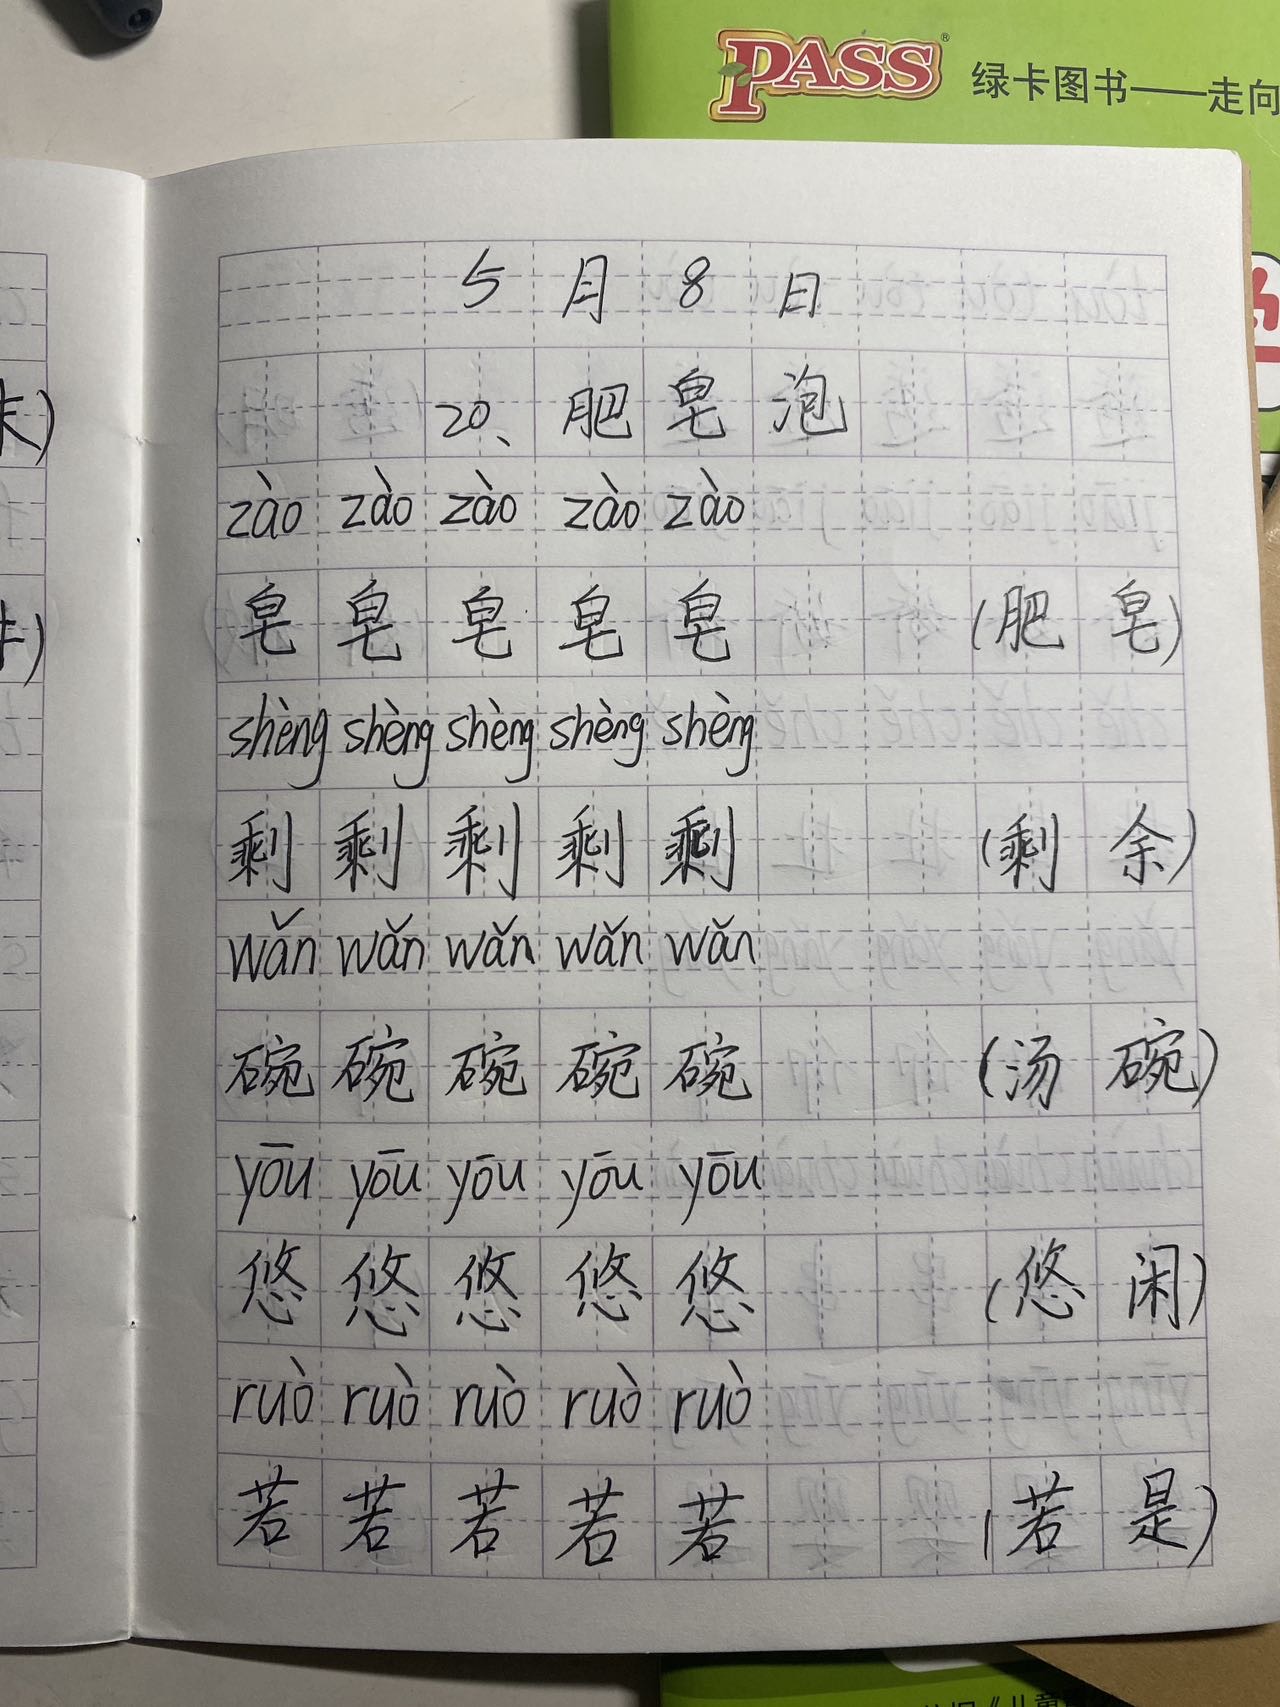 PASS® 绿卡图书——走向
5月8日
20、肥皂泡
zào zào zào zào zào
皂 皂 皂 皂 皂 (肥皂)
shèng shèng shèng shèng shèng
剩 剩 剩 剩 剩 (剩余)
wǎn wǎn wǎn wǎn wǎn
碗 碗 碗 碗 碗 (汤碗)
yōu yōu yōu yōu yōu
悠 悠 悠 悠 悠 (悠闲)
ruò ruò ruò ruò ruò
若 若 若 若 若 (若是)